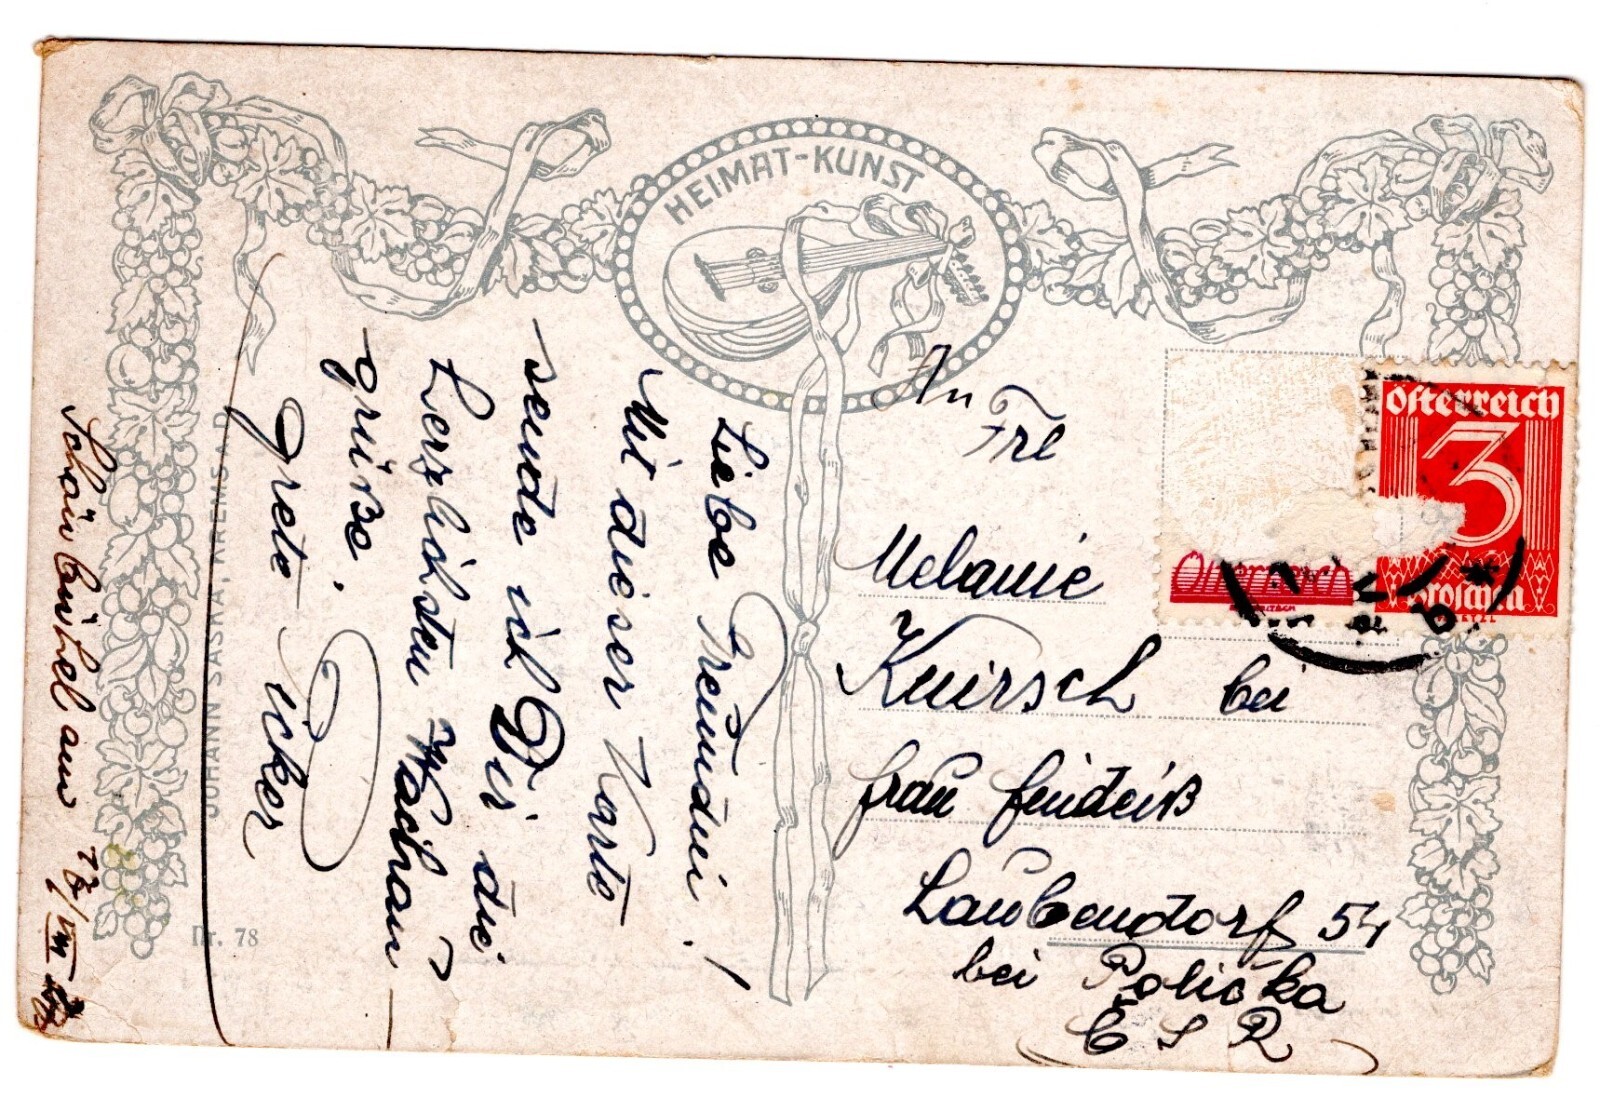 HEIMAT-KUNST
Liebe Freundin!
Mit dieser Karte
sende ich Dir die
herzlichsten Wachau-
grüße.
Grete
Schönbühel am
JOHANN SASKA, KREMS A. D.
Nr. 78
An
Frl
Melanie
Knirsch bei
Frau Feindeiß
Laubendorf 54
bei Polička
ČSR
Österreich
3
Groschen
Österreich